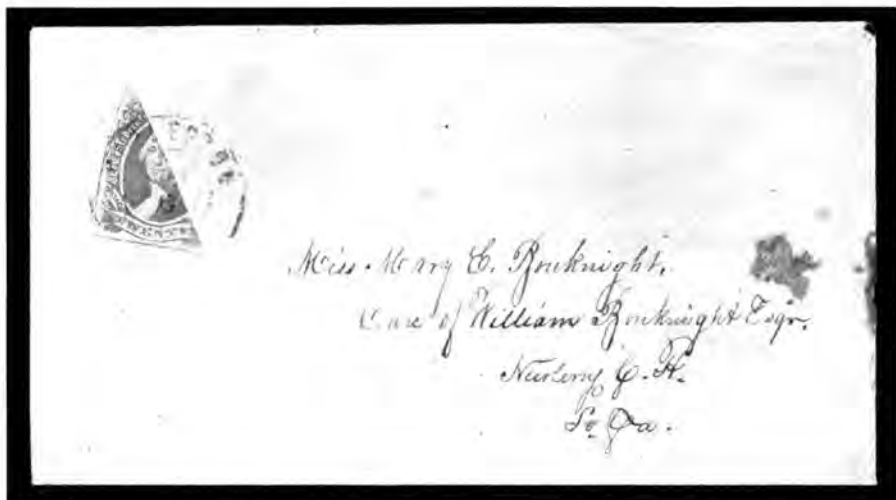 Miss. Mary C. Bouknight.
Care of William Bouknight Esqr.
C. H.
So. Ca.